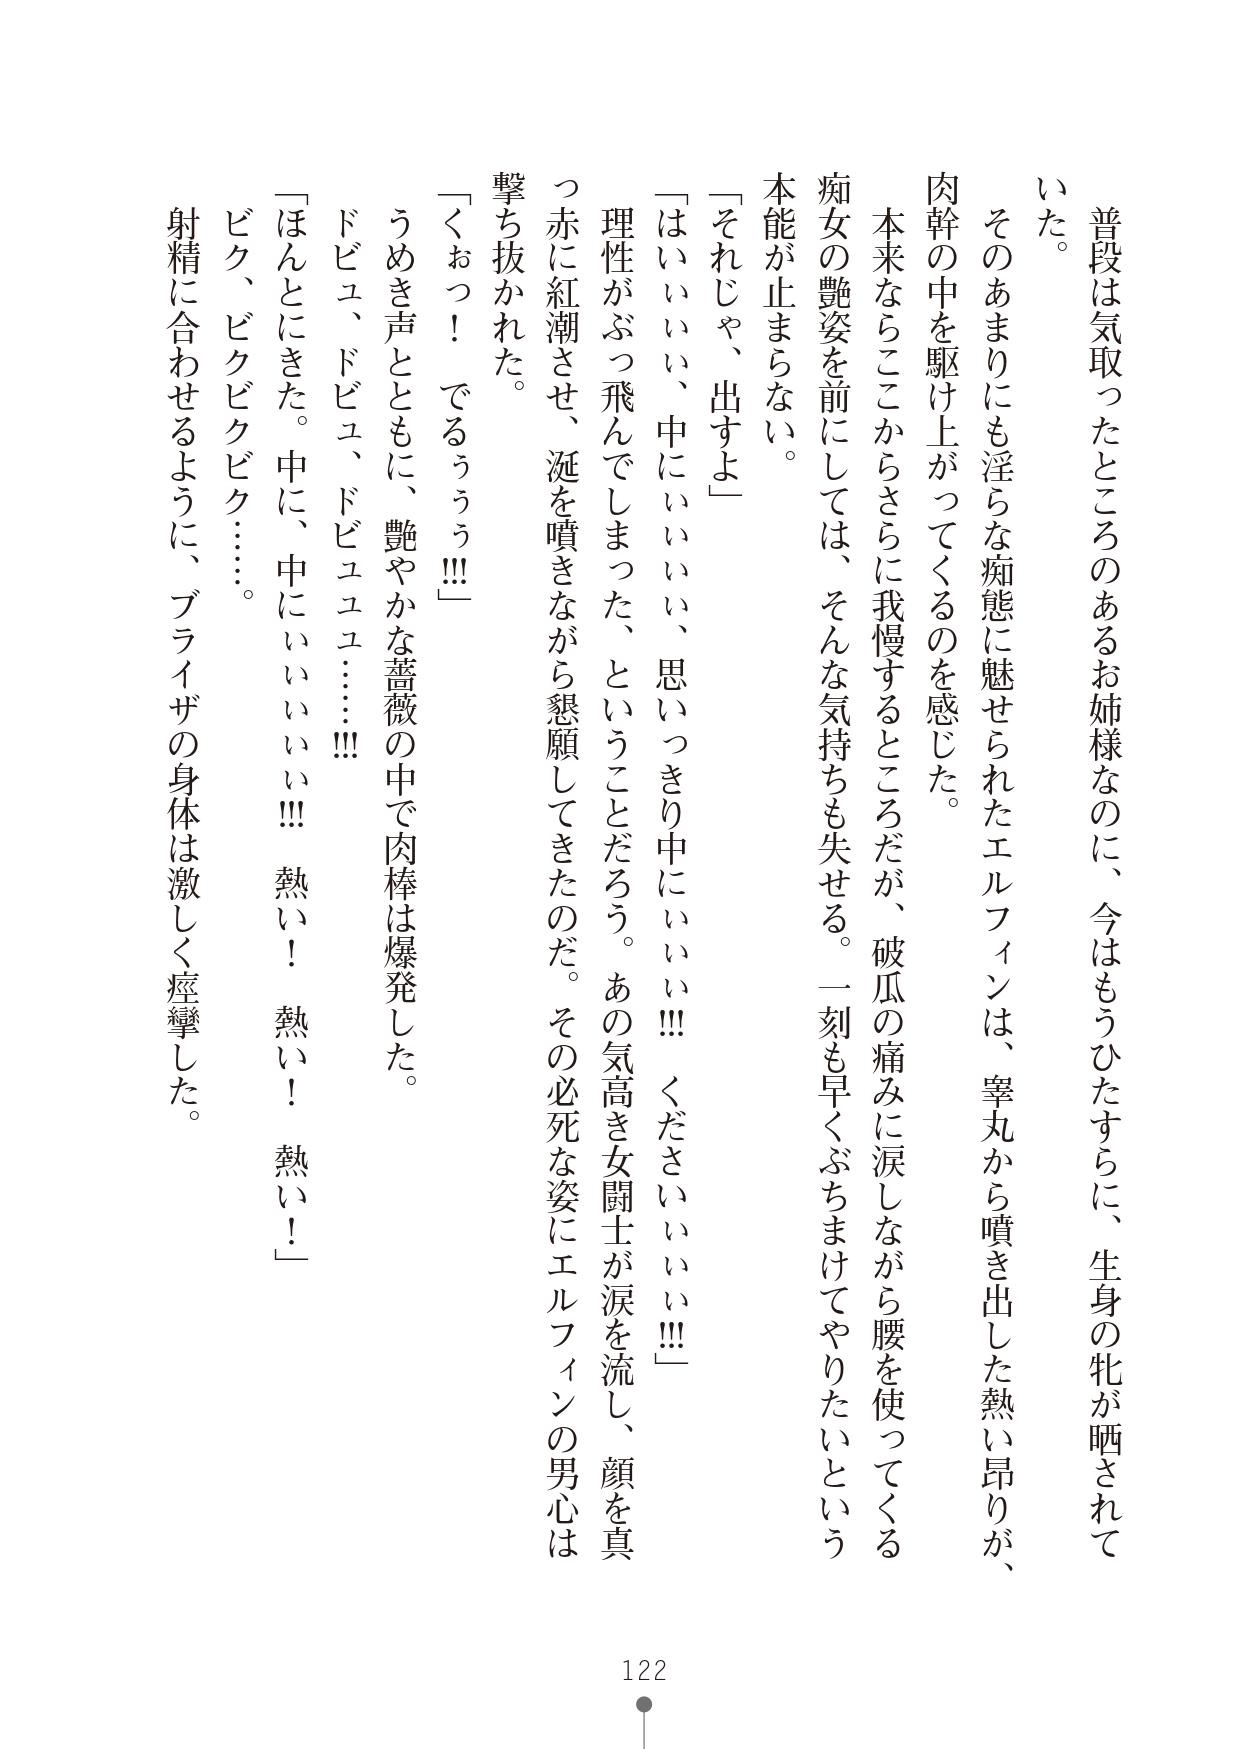 普段は気取ったところのあるお姉様なのに、今はもうひたすらに、生身の牝が晒されて
いた。
そのあまりにも淫らな痴態に魅せられたエルフィンは、睾丸から噴き出した熱い昂りが、
肉幹の中を駆け上がってくるのを感じた。
本来ならここからさらに我慢するところだが、破瓜の痛みに涙しながら腰を使ってくる
痴女の艶姿を前にしては、そんな気持ちも失せる。一刻も早くぶちまけてやりたいという
本能が止まらない。
「それじゃ、出すよ」
「はいぃぃぃ、中にぃぃぃぃ、思いっきり中にぃぃぃ!!!　くださいぃぃぃぃ!!!」
理性がぶっ飛んでしまった、ということだろう。あの気高き女闘士が涙を流し、顔を真
っ赤に紅潮させ、涎を噴きながら懇願してきたのだ。その必死な姿にエルフィンの男心は
撃ち抜かれた。
「くぉっ！　でるぅぅぅ!!!」
うめき声とともに、艶やかな薔薇の中で肉棒は爆発した。
ドビュ、ドビュ、ドビュュュ……!!!
「ほんとにきた。中に、中にぃぃぃぃぃ!!!　熱い！　熱い！　熱い！」
ビク、ビクビクビク……。
射精に合わせるように、ブライザの身体は激しく痙攣した。
122